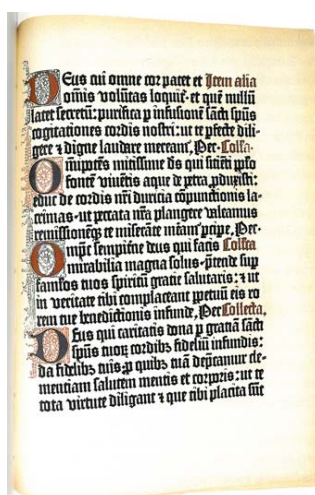 DEus cui omne cor patet et Item alia
om̄is volūtas loquit᷑· et quē nullū
latet secretū: purifica p infusionē sācti sp̄us
cogitationes cordis nostri: ut te p̄fecte dili-
gere ⁊ digne laudare meream᷑, Per· Coll̄a·
OMnipotēs mitissime d̄s qui sitiēti pp̄lo
fontē viuētis aque de petra ꝓduxisti:
educ de cordis nr̄i duricia cōpunctionis la-
crimas· ut peccata nr̄a plangere valeamus
remissionēqꝫ te miserāte mereamur p̄cipe, Per·
OMnip̄t sempit̄ne deus qui facis Coll̄cta
mirabilia magna solus· p̄tende sup
famulos tuos spiritū gratie salutaris: ⁊ ut
in veritate tibi complaceant ꝑpetuū eis ro
rem tue benedictionis infunde, Per Collecta,
DEus qui caritatis dona p gratiā sācti
sp̄us tuoꝝ cordibꝫ fideliū infundis:
da fidelibꝫ tuis ꝓ quibꝫ tuā dep̄camur cle-
mentiam salutem mentis et corporis: ut te
tota virtute diligant ⁊ que tibi placita sūt